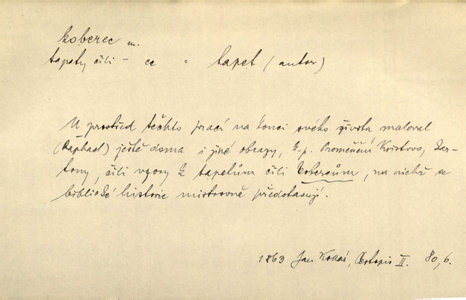 koberec m.
tapety čili - ce = tapet (autor)
U prostřed těchto prací na konci svého života maloval
(Raphael) ještě doma i jiné obrazy, t. p. Proměnění Kristovo, kar-
tony, čili vzory k tapetům čili kobercům, na nichž se
biblické historie mistrovně představují.
1863 Jan Kollár, Cestopis II. 80,6.